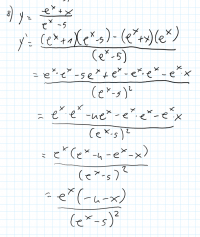 8) y = \frac{e^x + x}{e^x - 5}
y' = \frac{(e^x + 1)(e^x - 5) - (e^x + x)(e^x)}{(e^x - 5)}
= \frac{e^x \cdot e^x - 5e^x + e^x - e^x \cdot e^x - e^x x}{(e^x - 5)^2}
= \frac{e^x \cdot e^x - 4e^x - e^x \cdot e^x - e^x x}{(e^x - 5)^2}
= \frac{e^x (e^x - 4 - e^x - x)}{(e^x - 5)^2}
= \frac{e^x (-4 - x)}{(e^x - 5)^2}